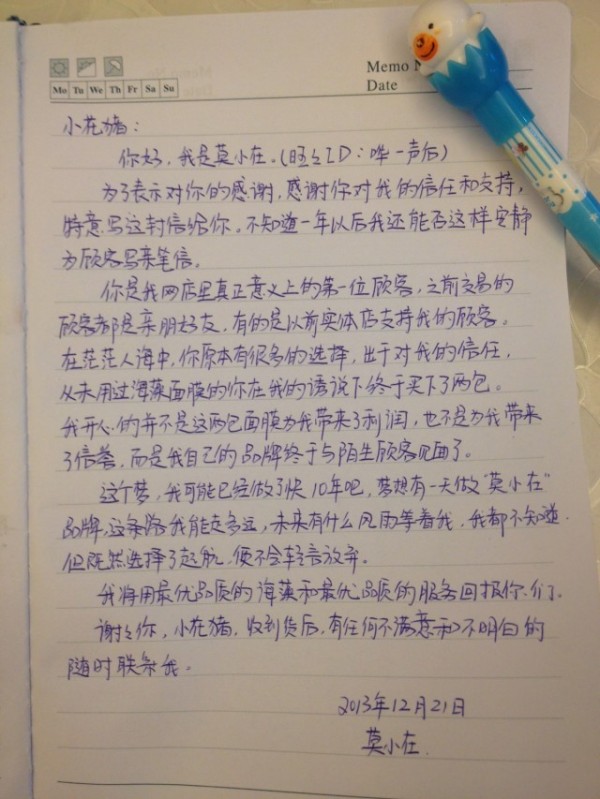 Memo N
Mo Tu We Th Fr Sa Su
Date
小花猪:
你好,我是莫小在。(旺旺ID:哗一声后)
为了表示对你的感谢,感谢你对我的信任和支持,
特意写这封信给你。不知道一年以后我还能否这样安静
为顾客写亲笔信。
你是我网店里真正意义上的第一位顾客,之前交易的
顾客都是亲朋好友,有的是以前实体店支持我的顾客。
在茫茫人海中,你原本有很多的选择,出于对我的信任,
从未用过海藻面膜的你在我的诱说下终于买下了两包。
我开心的并不是这两包面膜为我带来了利润,也不是为我带来
了信誉,而是我自己的品牌终于与陌生顾客见面了。
这个梦,我可能已经做了快10年吧,梦想有一天做“莫小在”
品牌,这条路我能走多远,未来有什么风雨等着我,我都不知道.
但既然选择了起航,便不会轻言放弃。
我将用最优品质的海藻和最优品质的服务回报你们。
谢谢你,小花猪,收到货后,有任何不满意和不明白的
随时联系我。
2013年12月21日
莫小在.